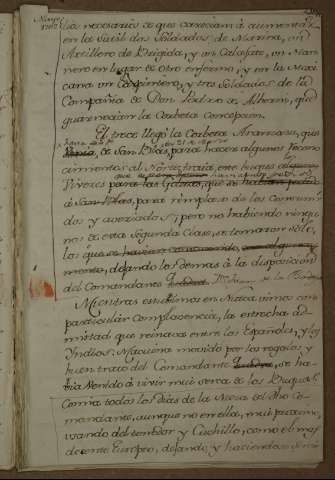 Marzo
1792
los necesarios de que careciam à aumentàr
en los Sutil dos Soldados de Marina, un
Artillero de Brigada, y un Calafate, un Mari
nero en lugar de otro enfermo, y en la Mexi
cana un Carpintero, y tres Soldados de la
Compañia de Don Pedro de Alberni, que
guarnecian la Corbeta Concepcion.
El trece llegó la Corbeta Aranzazu, que
de Sn Blas, para hacer algunos reconoci
mientos al Norte; traìa este buque
Viveres para las Goletas, que
à San Blas, para remplaso de los consumi
dos y averiados; pero no habiendo ningu
nos de esta Segunda Clase, se tomaron sólo
los que se habian consumido,
dejando los demas à la disposicion
del Comandante Dn Juan de la
Mientras estubimos en Nutca vimos con
particular complasencia, la estrecha ad
mistad que reinava entre los Españoles, y los
Yndios. Macuina movido por los regalos y
buen trato del Comandante se ha
bia Venido à vivir mui serca de los Buques:
Comia todos los Dias de la Mesa del dho Co
mandante, aunque no en ella, mui proximo,
usando del tenedor y Cuchillo, como el mas
desente Europeo, dejando y haciendo